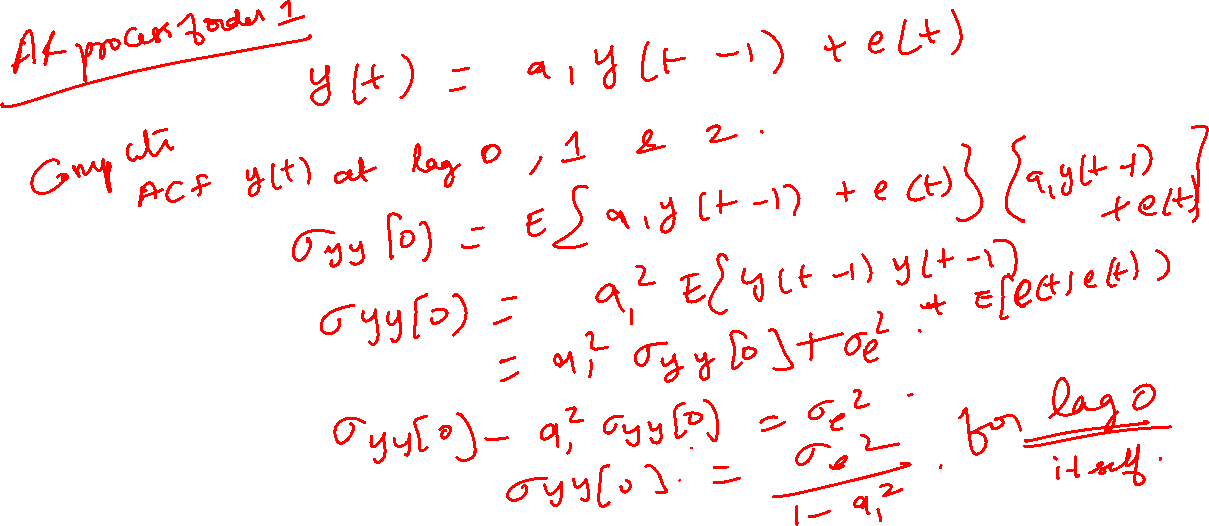 AR process of order 1
y(t) = a₁ y(t-1) + e(t)
Compute
ACF y(t) at lag 0, 1 & 2.
σyy[0] = E{a₁y(t-1) + e(t)} {a₁y(t-1) + e(t)}
σyy[0] = a₁² E{y(t-1) y(t-1)} + E[e(t) e(t))
= a₁² σyy[0] + σe².
σyy[0] - a₁² σyy[0] = σe².
σyy[0]. = σe² / 1 - a₁² . for lag 0
itself.